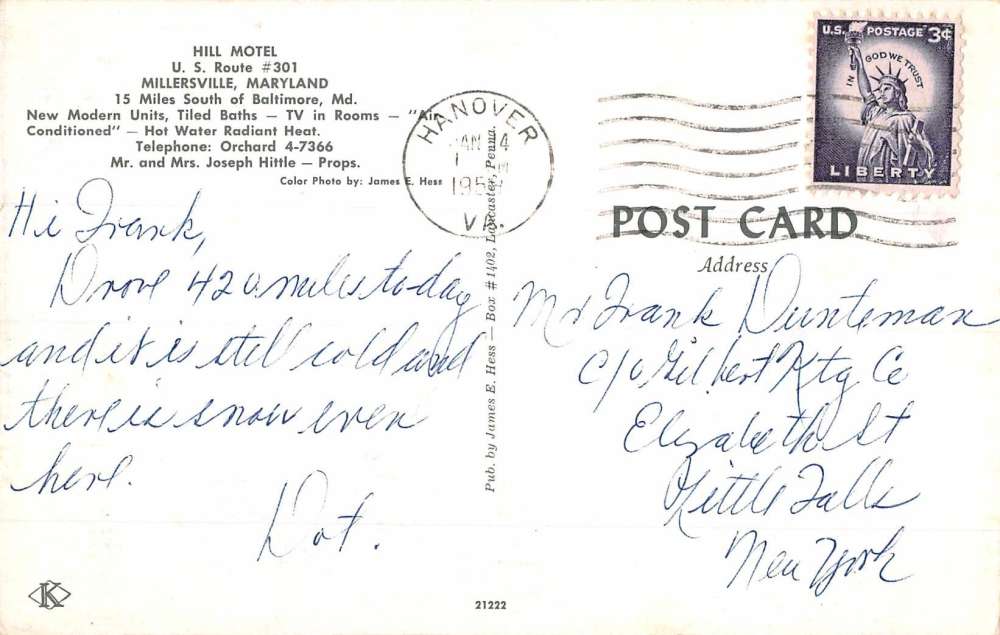 HILL MOTEL
U. S. Route #301
MILLERSVILLE, MARYLAND
15 Miles South of Baltimore, Md.
New Modern Units, Tiled Baths — TV in Rooms — "Air
Conditioned" — Hot Water Radiant Heat.
Telephone: Orchard 4-7366
Mr. and Mrs. Joseph Hittle — Props.
Color Photo by: James E. Hess
Hi Frank,
Drove 420 miles to-day
and it is still cold and
there is snow even
here.
Dot.
Pub. by James E. Hess — Box #1402, Lancaster, Penna.
HANOVER
JAN 4
VA.
U.S. POSTAGE 3¢
IN GOD WE TRUST
LIBERTY
POST CARD
Address
Mr Frank Dunteman
c/o Gilbert Ktg Co
Elizabeth St
Little Falls
New York
K
21222